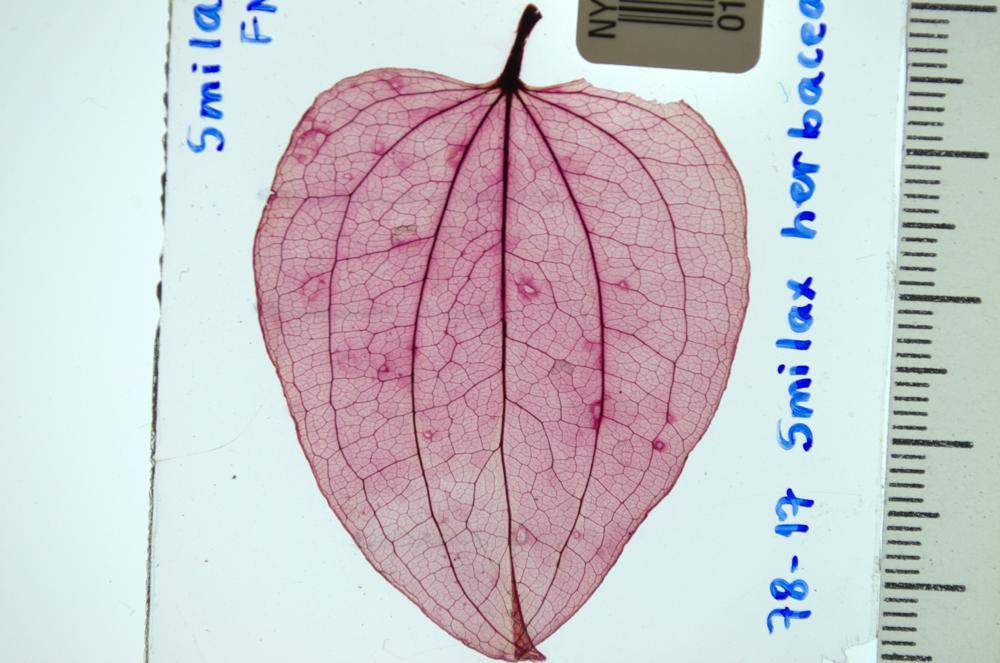 Smila
FN
NY
01
78-17 Smilax herbacea